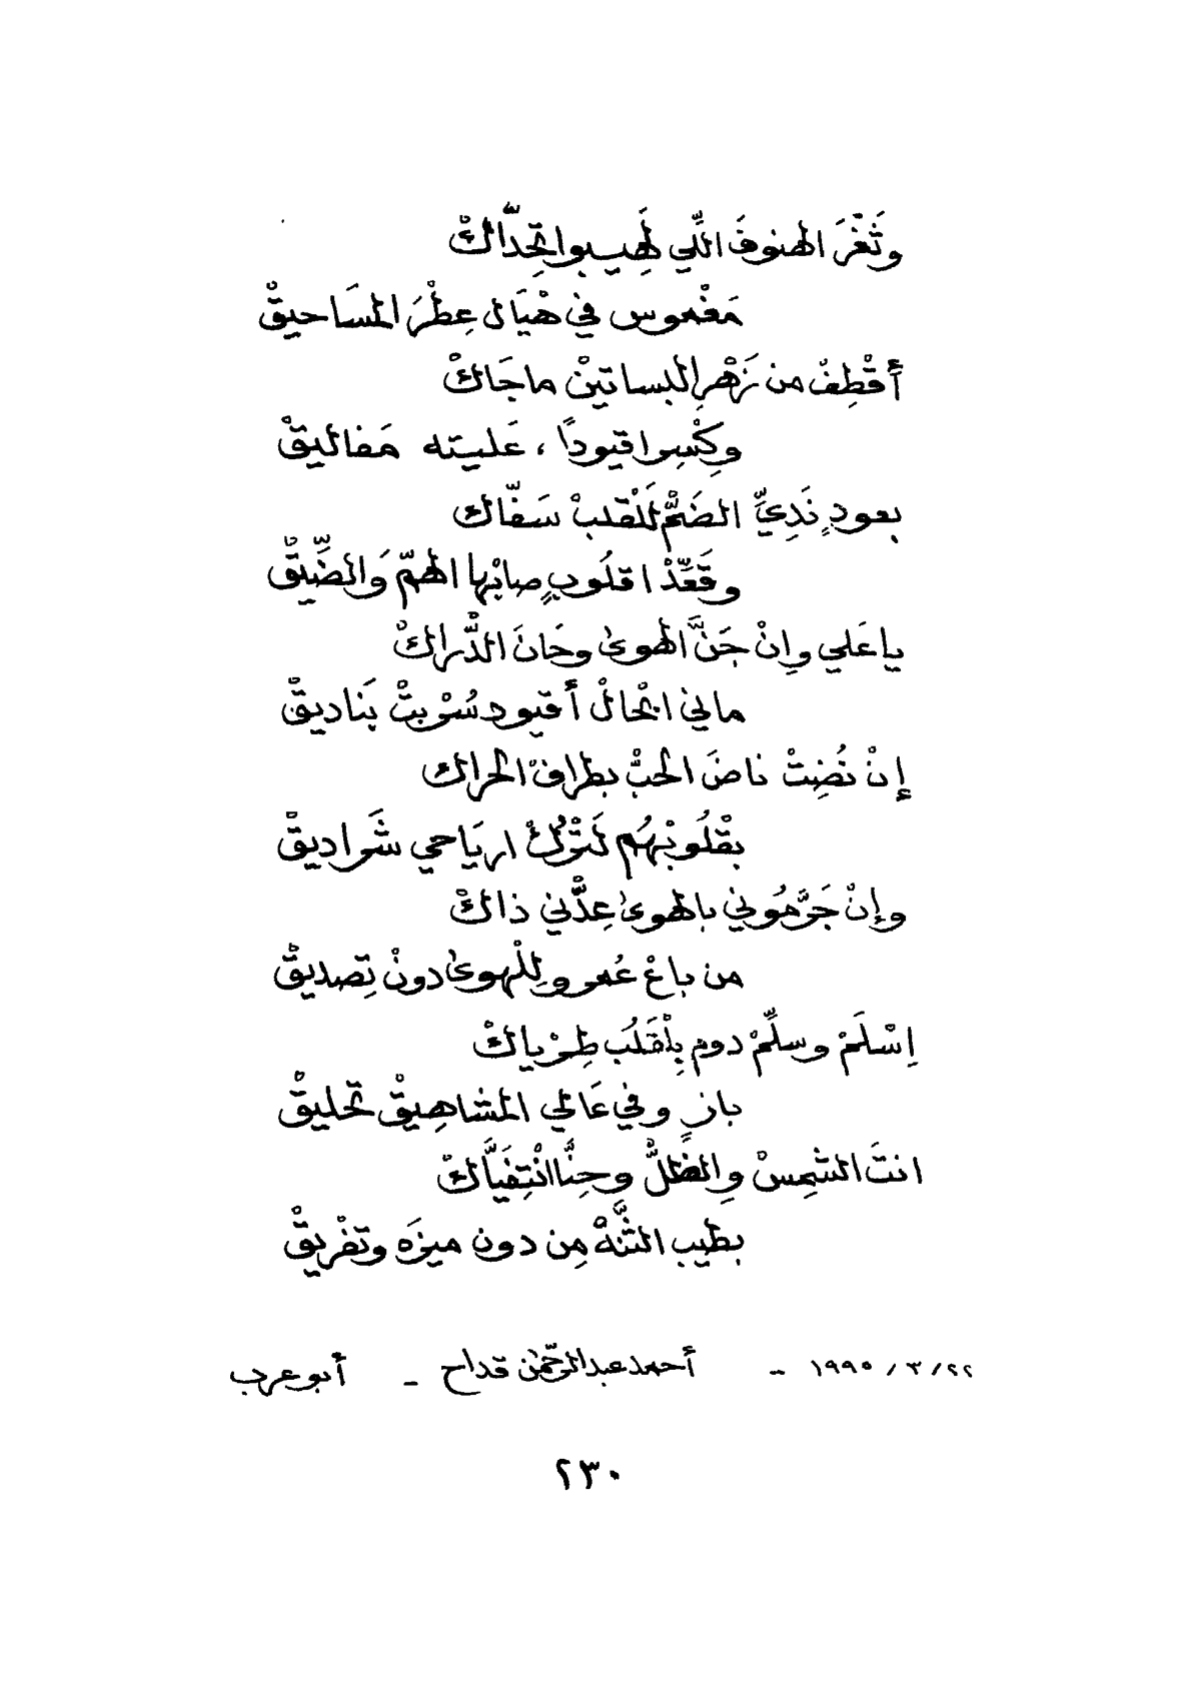 وثَغْرَ الهنوفَ اللِّي لَهيبو اتِّحِدَّاكْ
مَغْموس في هْيَال عِطْرَ المسَاحيقْ
أقْطِفْ من زَهْرِ البساتينْ ماجَاكْ
وكِسْر اقيوداً، عَليته مَغاليقْ
بعودٍ نَدِيِّ الضَمّْ لَلْقلبْ سَفّاك
وقَعِّدْ اقلُوبٍ صابْها الهمّ وَالضِّيقْ
ياعَلي وإنْ جَنَّ الهوىٰ وحَانَ الدَّراكْ
ماني ابْحالْ أقيود سُرْبتْ بَناديقْ
إنْ نُضِتْ ناضَ الحبّْ بطرافْ الحراك
بقْلُوبْهُم لَتْرُكْ ارِيَاحي شَراديقْ
وإنْ جَرَّهُوني بالهوىٰ عِدَّني ذاكْ
من باعْ عُمرو لِلْهوىٰ دونْ تِصديقْ
اِسْلَمْ وسلِّمْ دوم بِلْقَلُبَ طِرْياكْ
بازٍ وفي عَالي المشاهِيقْ تحليقْ
انتَ الشمِسْ والظلّْ وحِنَّا انْتِفَيَّاكْ
بطيب الثَّنَهْ مِن دون ميزَه وتفْريقْ
٢٢/٣/١٩٩٥ - أحمد عبدالرحمٰن قداح - أبوعرب
٢٣٠